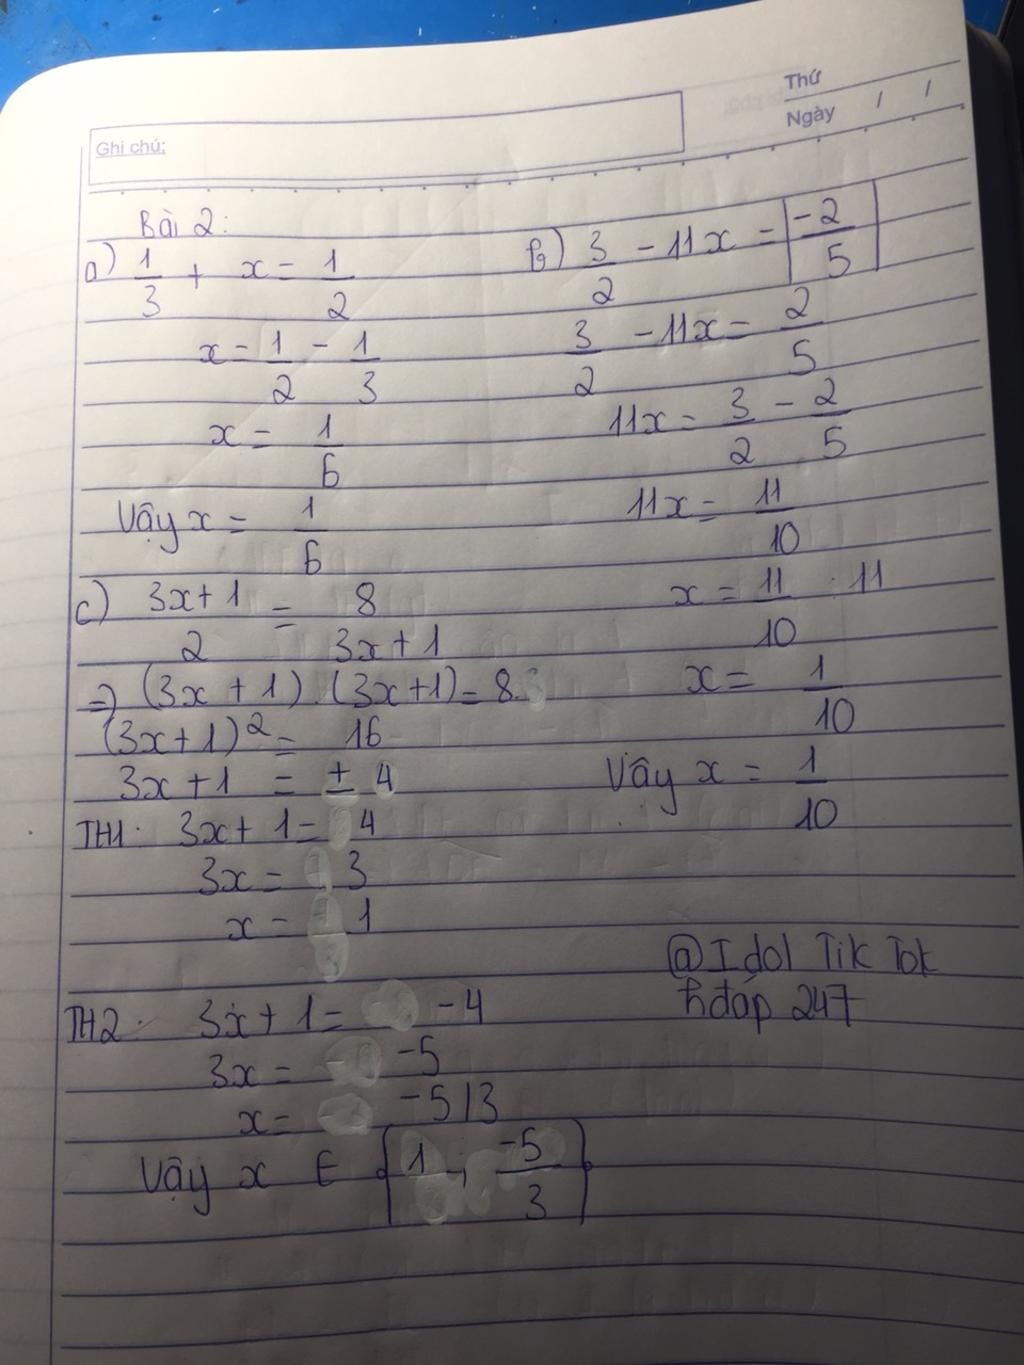 Thứ
Ngày / /
Ghi chú:
Bài 2:
a) 1/3 + x = 1/2
x = 1/2 - 1/3
x = 1/6
Vậy x = 1/6
b) 3/2 - 11x = |-2/5|
3/2 - 11x = 2/5
11x = 3/2 - 2/5
11x = 11/10
x = 11/10 : 11
x = 1/10
Vây x = 1/10
c) 3x+1/2 = 8/3x+1
=> (3x + 1) . (3x+1) = 8.
(3x+1)² = 16
3x + 1 = ± 4
TH1: 3x + 1 = 4
3x = 3
x = 1
TH2: 3x + 1 = -4
3x = -5
x = -5/3
Vậy x ∈ {1 ; -5/3}
@Idol Tik Tok
hđáp 247